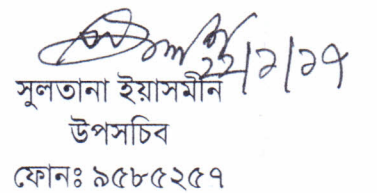 ২২/১/১৭
সুলতানা ইয়াসমীন
উপসচিব
ফোনঃ ৯৫৮৫২৫৭